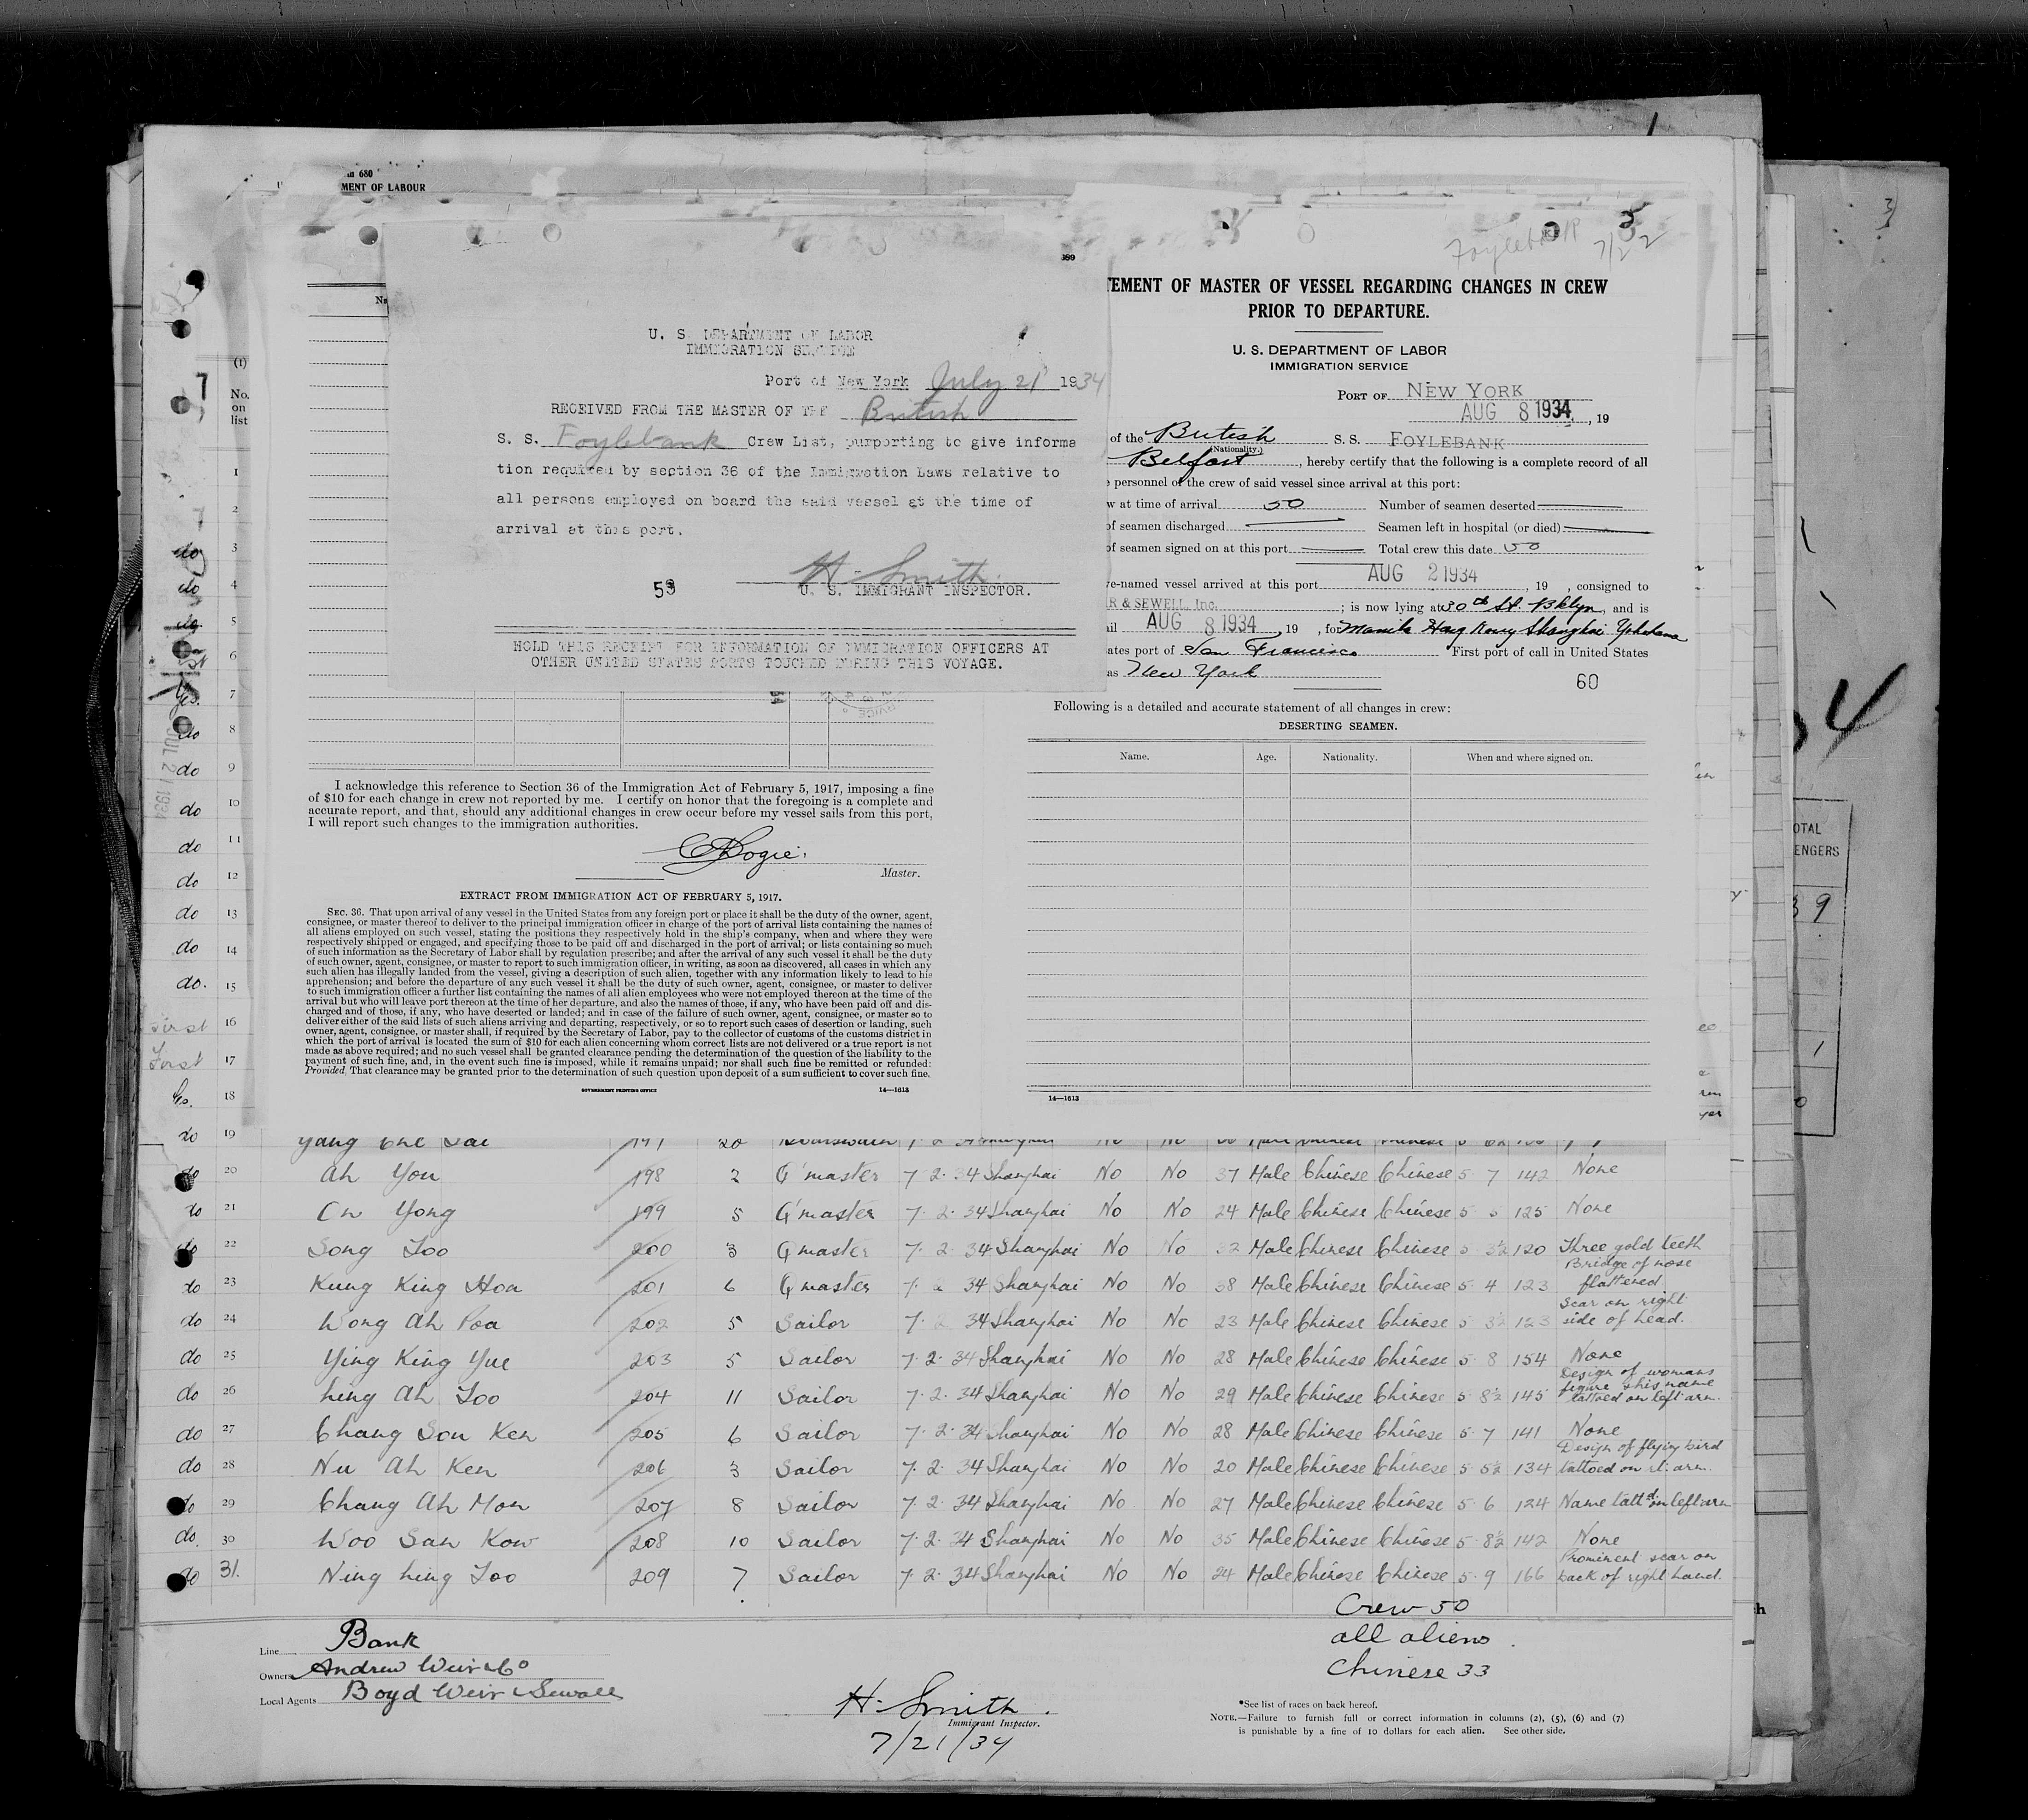 680
MENT OF LABOUR
U. S. DEPARTMENT OF LABOR
IMMIGRATION SERVICE
Port of New York July 21 1934
RECEIVED FROM THE MASTER OF THE British
S. S. Foylebank Crew List, purporting to give informa
tion required by section 36 of the Immigration Laws relative to
all persons employed on board the said vessel at the time of
arrival at this port.
H. Smith
U. S. IMMIGRANT INSPECTOR.
HOLD THIS RECEIPT FOR INFORMATION OF IMMIGRATION OFFICERS AT
OTHER UNITED STATES PORTS TOUCHED DURING THIS VOYAGE.
Foylebank 7/22
TEMENT OF MASTER OF VESSEL REGARDING CHANGES IN CREW
PRIOR TO DEPARTURE.
U. S. DEPARTMENT OF LABOR
IMMIGRATION SERVICE
PORT OF NEW YORK
AUG 8 1934, 19
of the British S. S. FOYLEBANK
(Nationality.)
Belfast, hereby certify that the following is a complete record of all
e personnel of the crew of said vessel since arrival at this port:
w at time of arrival 50 Number of seamen deserted
of seamen discharged Seamen left in hospital (or died)
of seamen signed on at this port Total crew this date 50
ve-named vessel arrived at this port AUG 2 1934, 19 , consigned to
R & SEWELL, Inc. ; is now lying at 30th St. Bklyn, and is
ail AUG 8 1934, 19 , for Manila Hong Kong Shanghai Yokohama
ates port of San Francisco First port of call in United States
as New York
60
Following is a detailed and accurate statement of all changes in crew:
DESERTING SEAMEN.
Name. Age. Nationality. When and where signed on.
14—1613
I acknowledge this reference to Section 36 of the Immigration Act of February 5, 1917, imposing a fine
of $10 for each change in crew not reported by me. I certify on honor that the foregoing is a complete and
accurate report, and that, should any additional changes in crew occur before my vessel sails from this port,
I will report such changes to the immigration authorities.
Master.
EXTRACT FROM IMMIGRATION ACT OF FEBRUARY 5, 1917.
SEC. 36. That upon arrival of any vessel in the United States from any foreign port or place it shall be the duty of the owner, agent,
consignee, or master thereof to deliver to the principal immigration officer in charge of the port of arrival lists containing the names of
all aliens employed on such vessel, stating the positions they respectively hold in the ship's company, when and where they were
respectively shipped or engaged, and specifying those to be paid off and discharged in the port of arrival; or lists containing so much
of such information as the Secretary of Labor shall by regulation prescribe; and after the arrival of any such vessel it shall be the duty
of such owner, agent, consignee, or master to report to such immigration officer, in writing, as soon as discovered, all cases in which any
such alien has illegally landed from the vessel, giving a description of such alien, together with any information likely to lead to his
apprehension; and before the departure of any such vessel it shall be the duty of such owner, agent, consignee, or master to deliver
to such immigration officer a further list containing the names of all alien employees who were not employed thereon at the time of the
arrival but who will leave port thereon at the time of her departure, and also the names of those, if any, who have been paid off and dis-
charged and of those, if any, who have deserted or landed; and in case of the failure of such owner, agent, consignee, or master so to
deliver either of the said lists of such aliens arriving and departing, respectively, or so to report such cases of desertion or landing, such
owner, agent, consignee, or master shall, if required by the Secretary of Labor, pay to the collector of customs of the customs district in
which the port of arrival is located the sum of $10 for each alien concerning whom correct lists are not delivered or a true report is not
made as above required; and no such vessel shall be granted clearance pending the determination of the question of the liability to the
payment of such fine, and, in the event such fine is imposed, while it remains unpaid; nor shall such fine be remitted or refunded:
Provided, That clearance may be granted prior to the determination of such question upon deposit of a sum sufficient to cover such fine.
GOVERNMENT PRINTING OFFICE 14—1613
(1)
No.
on
list
1
2
do 3
do 4
do 5
6
Yes. 7
do 8
do 9
do 10
do 11
do 12
do 13
do 14
do. 15
First 16
First 17
18
do 19
do 20 Ah You 198 2 Q'master 7 2 34 Shanghai No No 37 Male Chinese Chinese 5 7 142 None
do 21 On Yong 199 5 Q'master 7 2 34 Shanghai No No 24 Male Chinese Chinese 5 5 125 None
do 22 Song Loo 200 3 Qmaster 7 2 34 Shanghai No No 32 Male Chinese Chinese 5 3½ 120 Three gold teeth
do 23 Kung King Hoa 201 6 Qmaster 7 2 34 Shanghai No No 38 Male Chinese Chinese 5 4 123 Bridge of nose flattened
do 24 Wong Ah Poa 202 5 Sailor 7 2 34 Shanghai No No 23 Male Chinese Chinese 5 3½ 123 Scar on right side of head.
do 25 Ying King Yue 203 5 Sailor 7 2 34 Shanghai No No 28 Male Chinese Chinese 5 8 154 None
do 26 Ling Ah Loo 204 11 Sailor 7 2 34 Shanghai No No 29 Male Chinese Chinese 5 8½ 145 Design of womans figure & his name tattoed on left arm.
do 27 Chang Sou Ken 205 6 Sailor 7 2 34 Shanghai No No 28 Male Chinese Chinese 5 7 141 None
do 28 Nu Ah Ken 206 3 Sailor 7 2 34 Shanghai No No 20 Male Chinese Chinese 5 5½ 134 Design of flying bird tattoed on rt. arm.
do 29 Chang Ah Mon 207 8 Sailor 7 2 34 Shanghai No No 27 Male Chinese Chinese 5 6 124 Name tattd on left arm
do. 30 Woo San Kow 208 10 Sailor 7 2 34 Shanghai No No 35 Male Chinese Chinese 5 8½ 142 None
do 31. Ning Ling Loo 209 7 Sailor 7 2 34 Shanghai No No 24 Male Chinese Chinese 5 9 166 Prominent scar on back of right hand.
Crew 50
all aliens
Chinese 33
Line Bank
Owners Andrew Weir & Co
Local Agents Boyd Weir & Sewall
H. Smith.
Immigrant Inspector.
7/21/34
*See list of races on back hereof.
NOTE.—Failure to furnish full or correct information in columns (2), (5), (6) and (7)
is punishable by a fine of 10 dollars for each alien. See other side.
OTAL
ENGERS
39
1